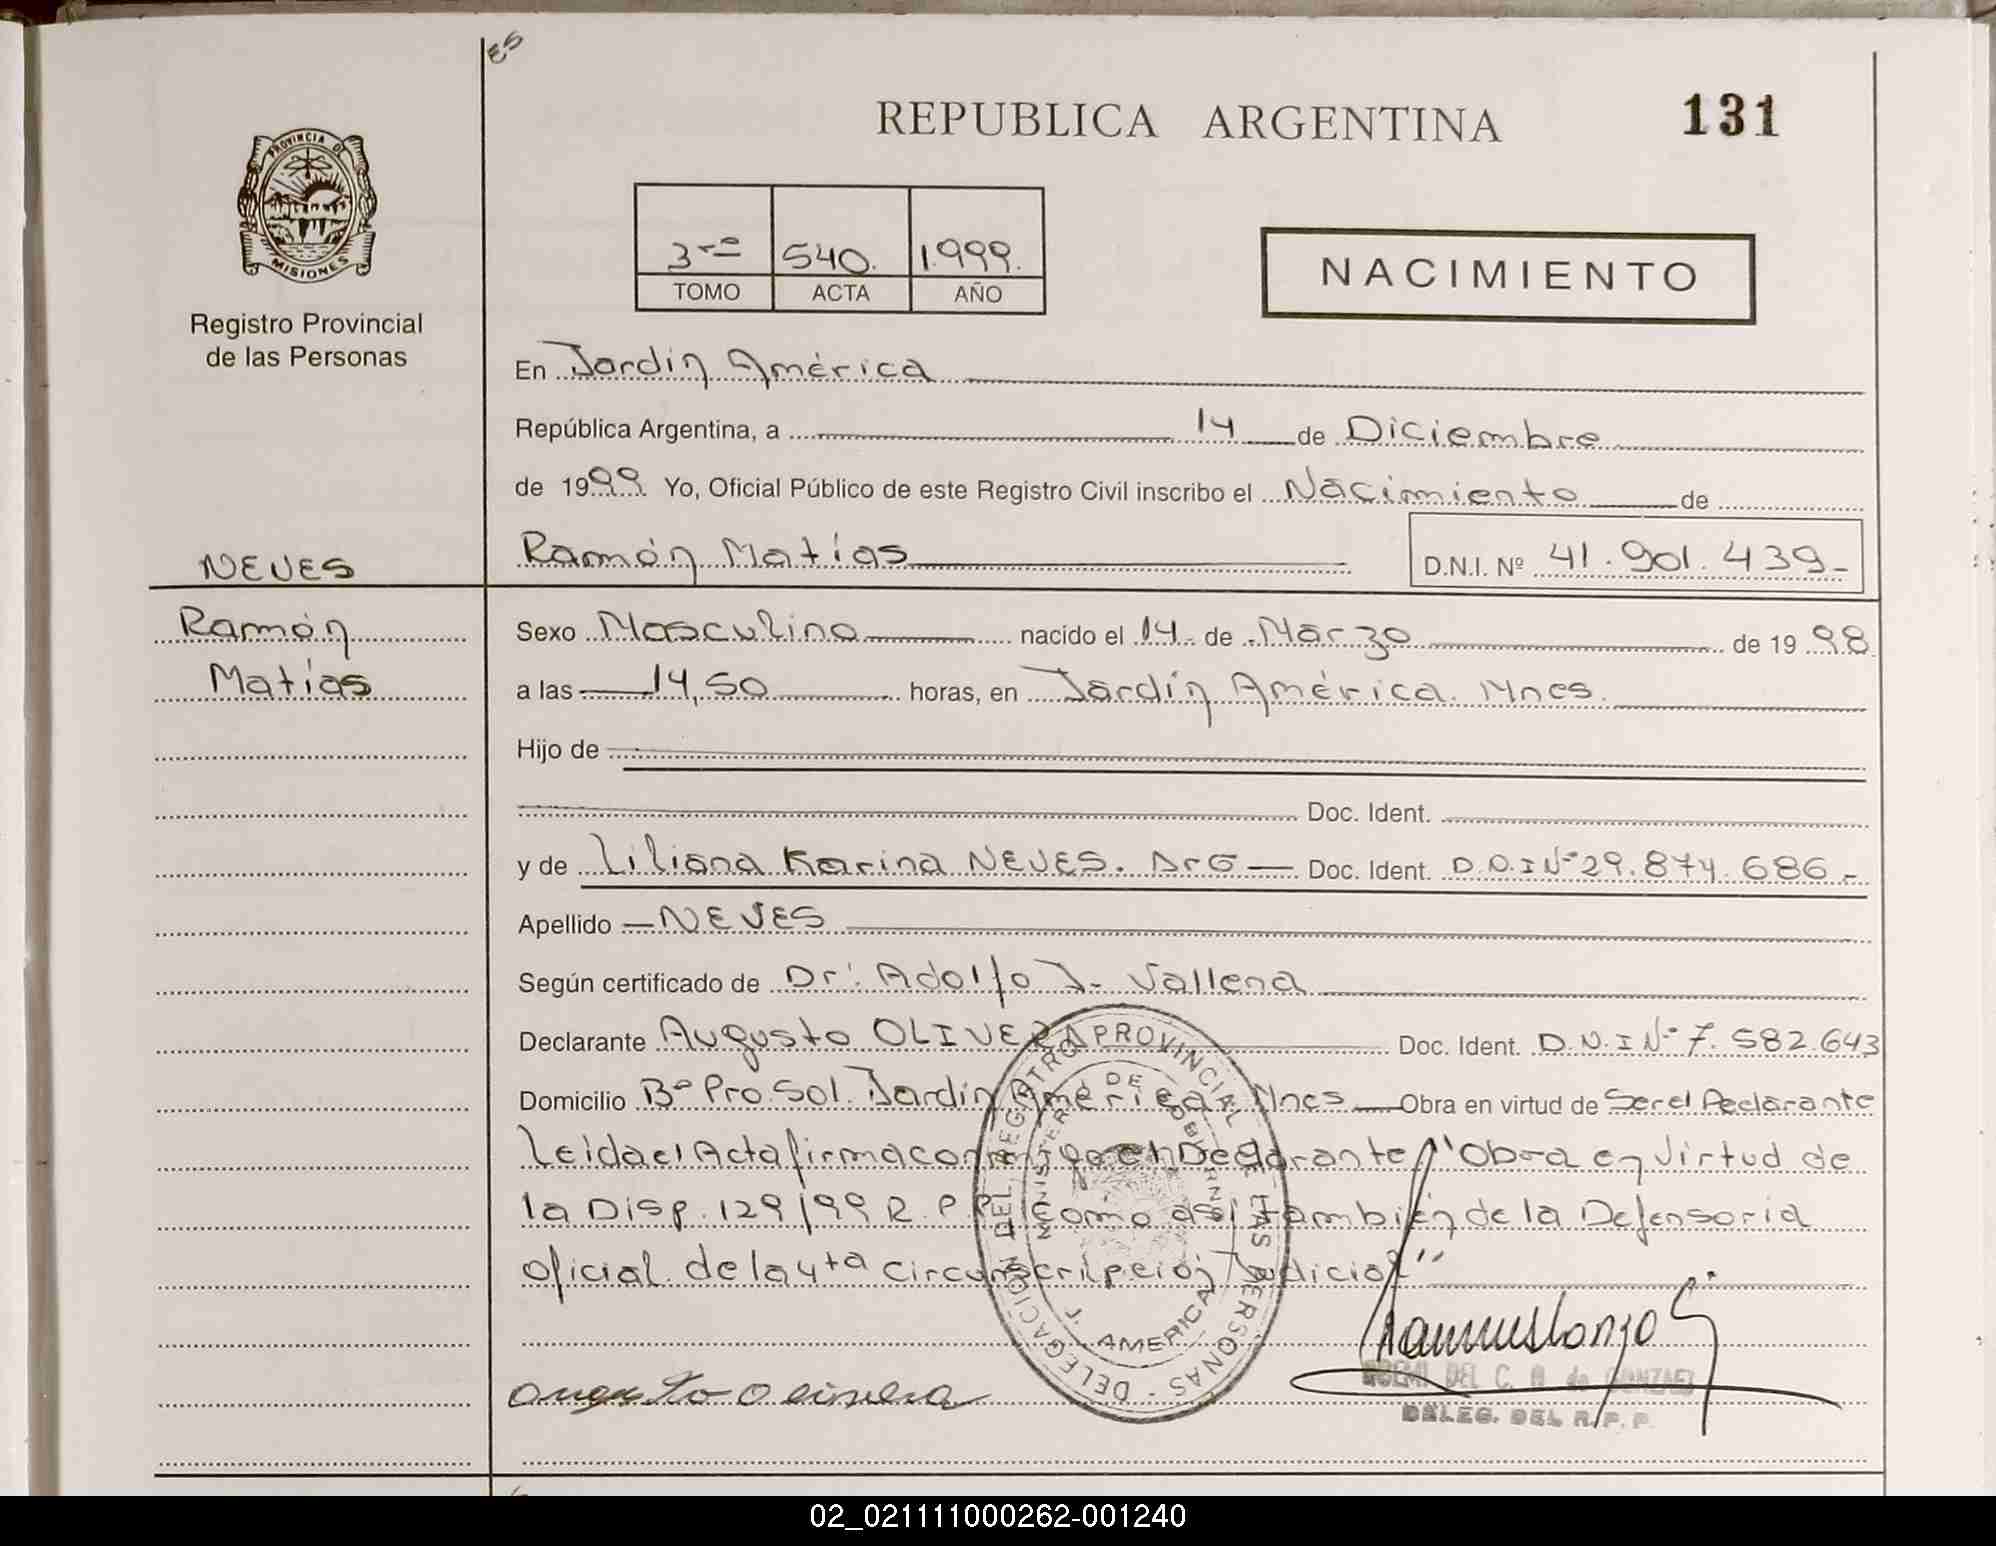 ES
REPUBLICA ARGENTINA 131
PROVINCIA DE MISIONES
Registro Provincial
de las Personas
3ro 540. 1.999.
TOMO ACTA AÑO
NACIMIENTO
En Jardín América
República Argentina, a 14 de Diciembre
de 1999 Yo, Oficial Público de este Registro Civil inscribo el Nacimiento de
NEVES Ramón Matías D.N.I. Nº 41.901.439-
Ramón Sexo Masculino nacido el 14 de Marzo de 1998
Matías a las 14,50 horas, en Jardín América. Mnes.
Hijo de
Doc. Ident.
y de Liliana Karina NEVES. Arg Doc. Ident. D.N.I Nº 29.874.686.-
Apellido NEVES
Según certificado de Dr: Adolfo J. Vallena
Declarante Augusto OLIVERA Doc. Ident. D.N.I Nº 7.582.643
Domicilio Bº Pro.Sol. Jardín América Mnes Obra en virtud de Ser el Declarante
Leida el Acta firma conmigo el Declarante "Obra en virtud de
la Disp. 129/99 R.P.P. como así también de la Defensoria
oficial de la 4ta circunscripción Judicial"
DELEGACION DEL REGISTRO PROVINCIAL DE LAS PERSONAS
MINISTERIO DE GOBIERNO
J. AMERICA
NOEMI DEL C. A. de GONZALEZ
DELEG. DEL R.P.P.
augusto olivera
02_021111000262-001240